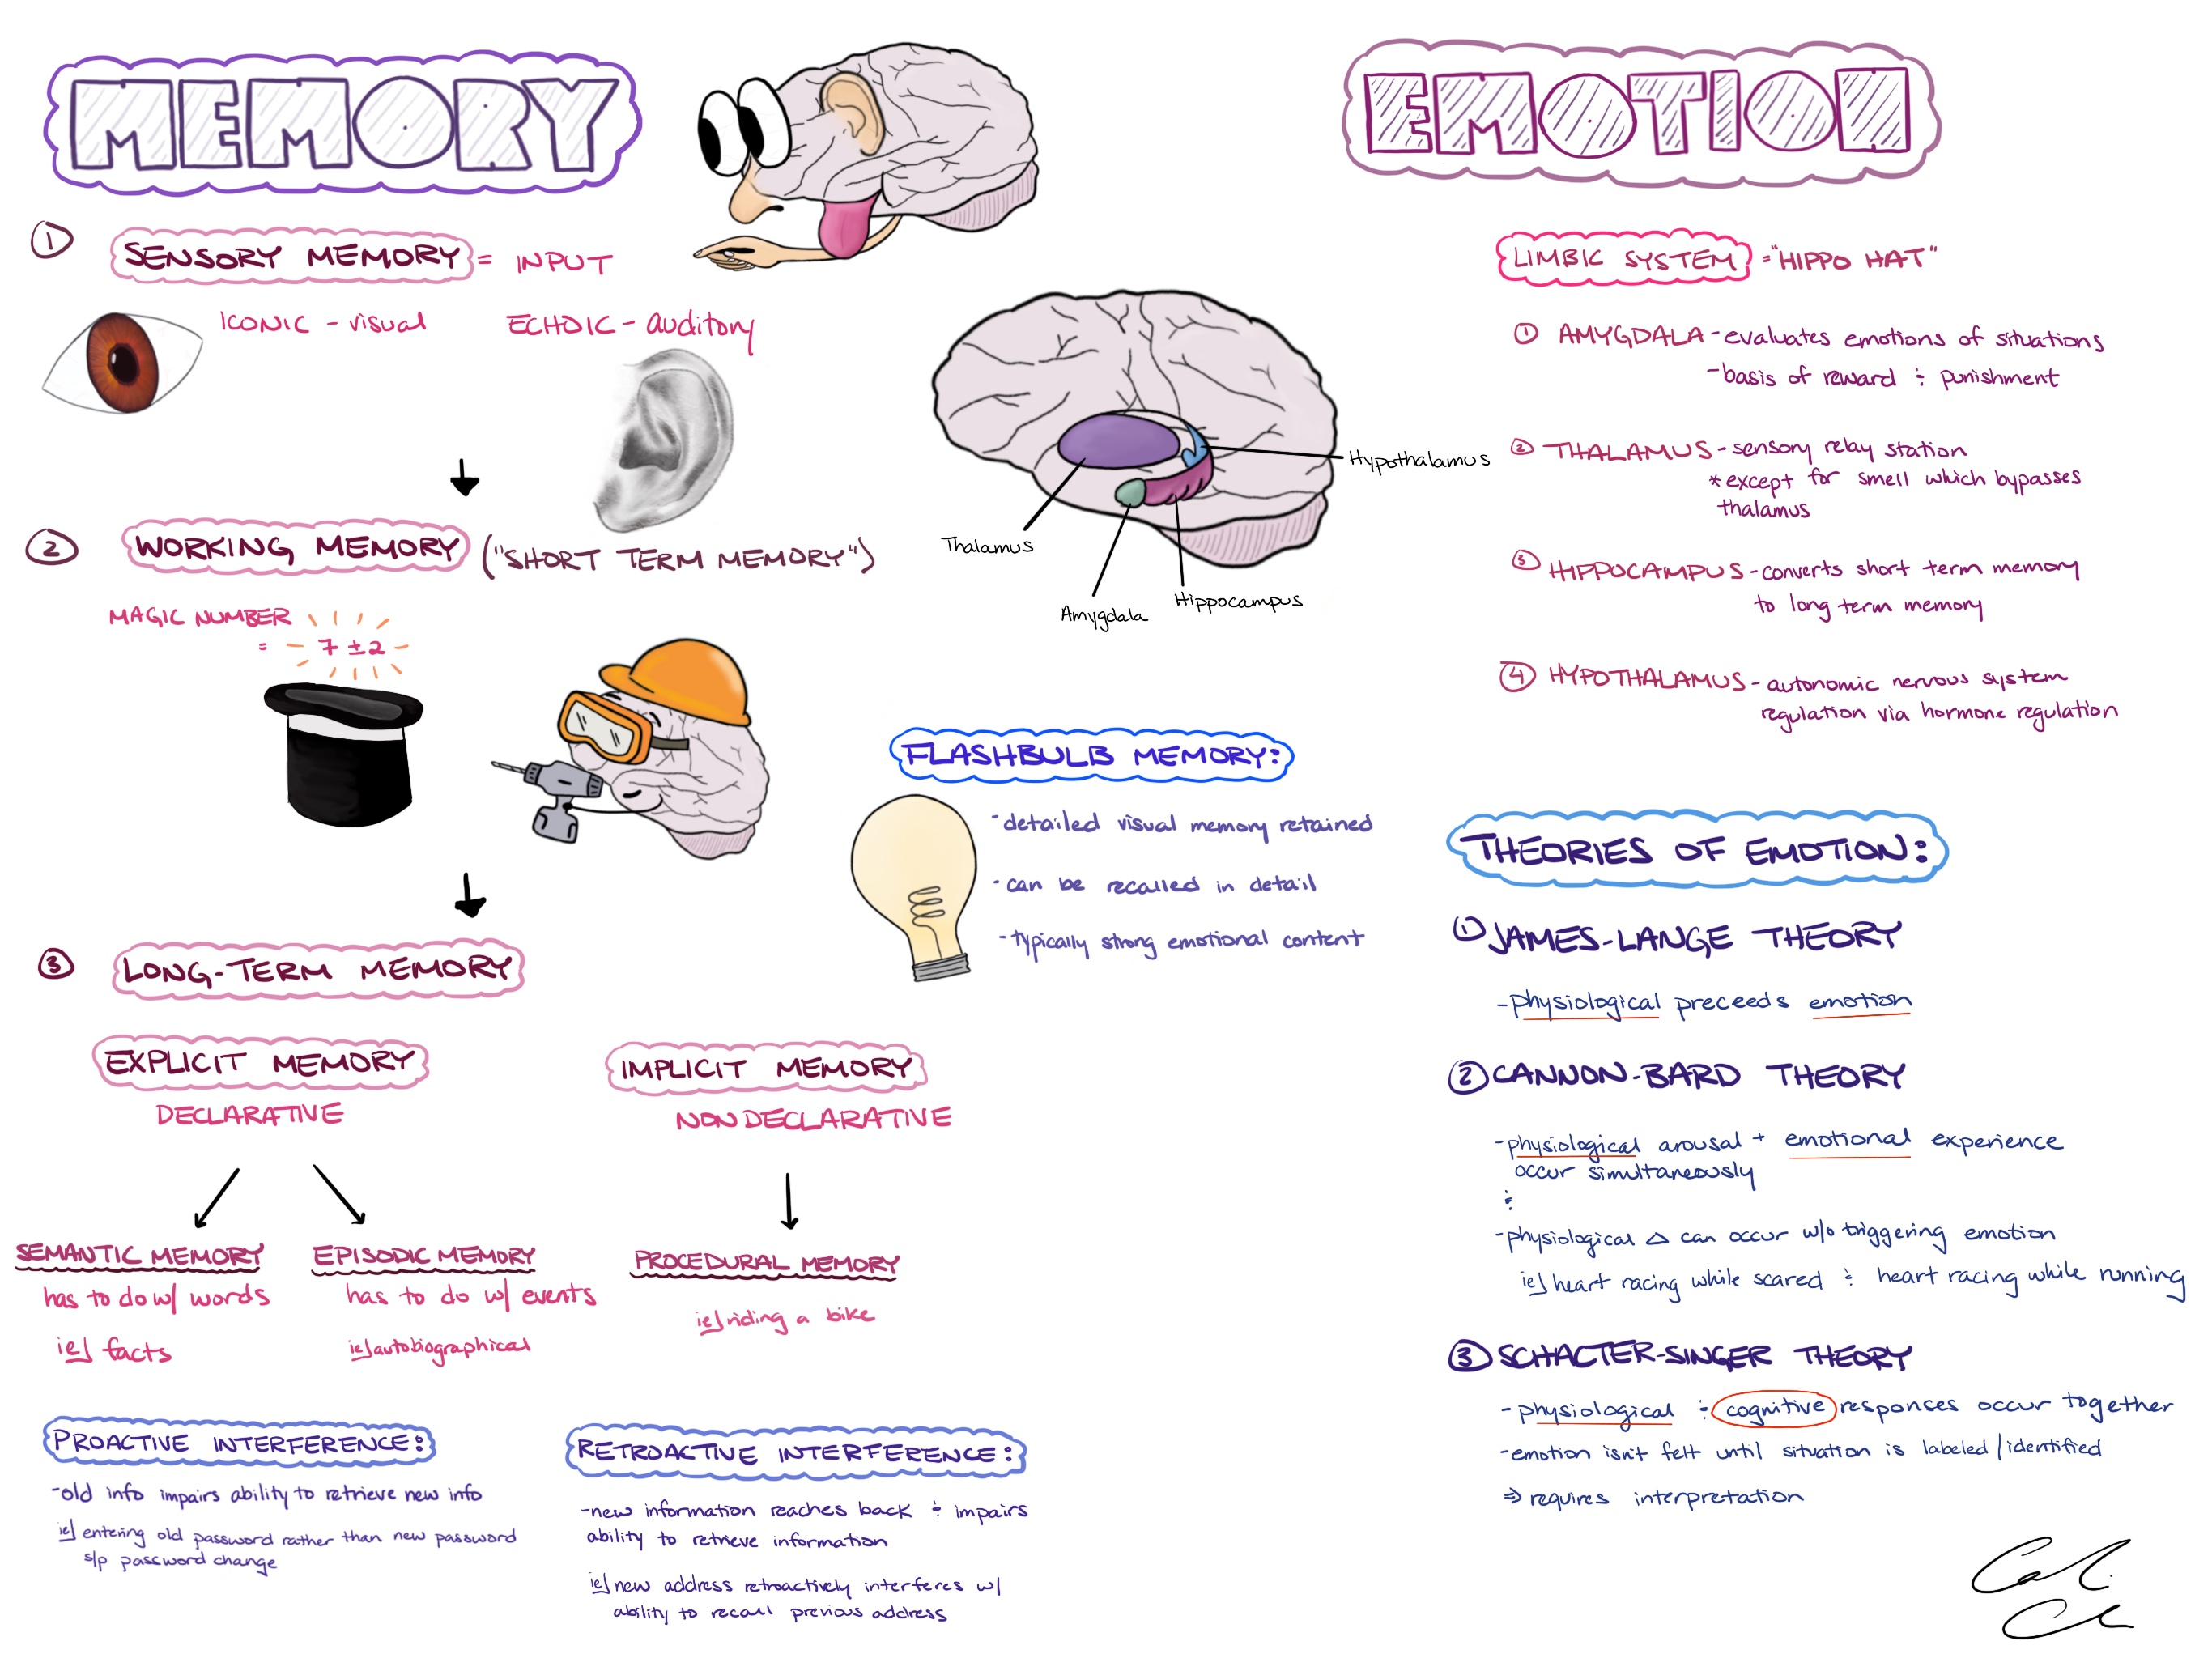 MEMORY
① SENSORY MEMORY = INPUT
ICONIC - visual
ECHOIC - auditory
② WORKING MEMORY ("SHORT TERM MEMORY")
MAGIC NUMBER
= 7 ±2
③ LONG-TERM MEMORY
EXPLICIT MEMORY
DECLARATIVE
SEMANTIC MEMORY
has to do w/ words
ie] facts
EPISODIC MEMORY
has to do w/ events
ie] autobiographical
IMPLICIT MEMORY
NONDECLARATIVE
PROCEDURAL MEMORY
ie] riding a bike
PROACTIVE INTERFERENCE:
-old info impairs ability to retrieve new info
ie] entering old password rather than new password
s/p password change
RETROACTIVE INTERFERENCE:
-new information reaches back & impairs
ability to retrieve information
ie] new address retroactively interferes w/
ability to recall previous address
Hypothalamus
Thalamus
Amygdala
Hippocampus
FLASHBULB MEMORY:
-detailed visual memory retained
-can be recalled in detail
-typically strong emotional content
EMOTION
LIMBIC SYSTEM = "HIPPO HAT"
① AMYGDALA - evaluates emotions of situations
-basis of reward & punishment
② THALAMUS - sensory relay station
*except for smell which bypasses
thalamus
③ HIPPOCAMPUS - converts short term memory
to long term memory
④ HYPOTHALAMUS - autonomic nervous system
regulation via hormone regulation
THEORIES OF EMOTION:
① JAMES-LANGE THEORY
-physiological preceeds emotion
② CANNON-BARD THEORY
-physiological arousal + emotional experience
occur simultaneously
&
-physiological Δ can occur w/o triggering emotion
ie] heart racing while scared & heart racing while running
③ SCHACTER-SINGER THEORY
-physiological & cognitive responses occur together
-emotion isn't felt until situation is labeled/identified
⇒ requires interpretation